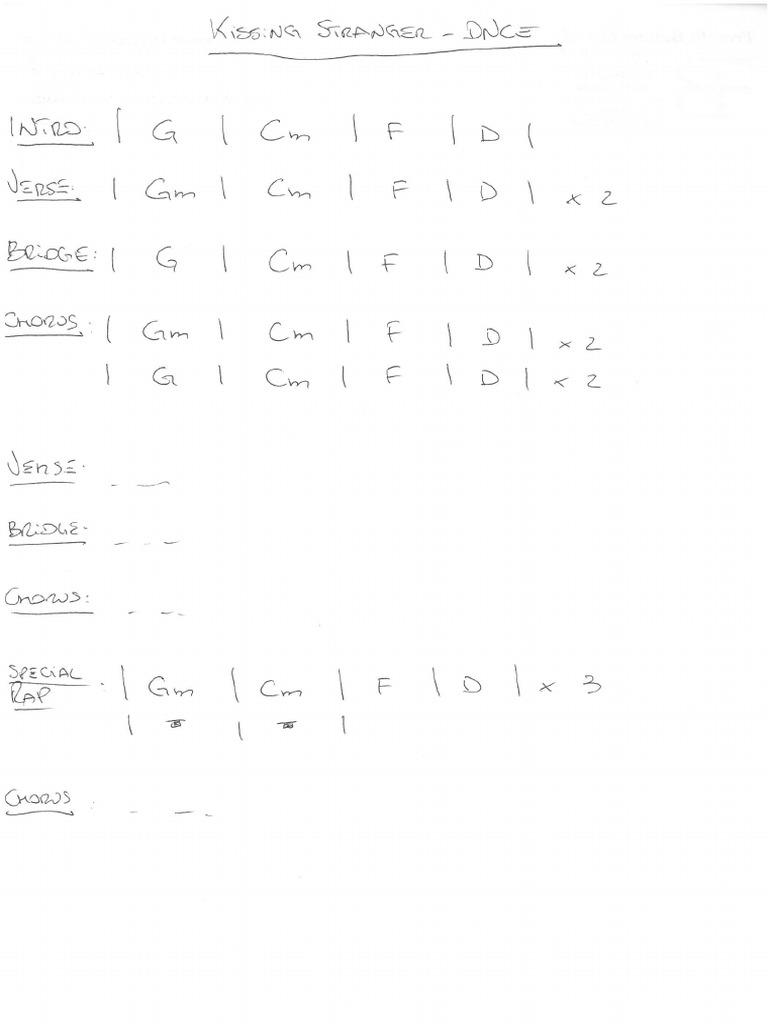 Kissing Stranger - DNCE
Intro: | G | Cm | F | D |
Verse: | Gm | Cm | F | D | x 2
Bridge: | G | Cm | F | D | x 2
Chorus: | Gm | Cm | F | D | x 2
| G | Cm | F | D | x 2
Verse: - —
Bridge: - - -
Chorus: - - -
Special
Rap : | Gm | Cm | F | D | x 3
| | |
Chorus : - — -